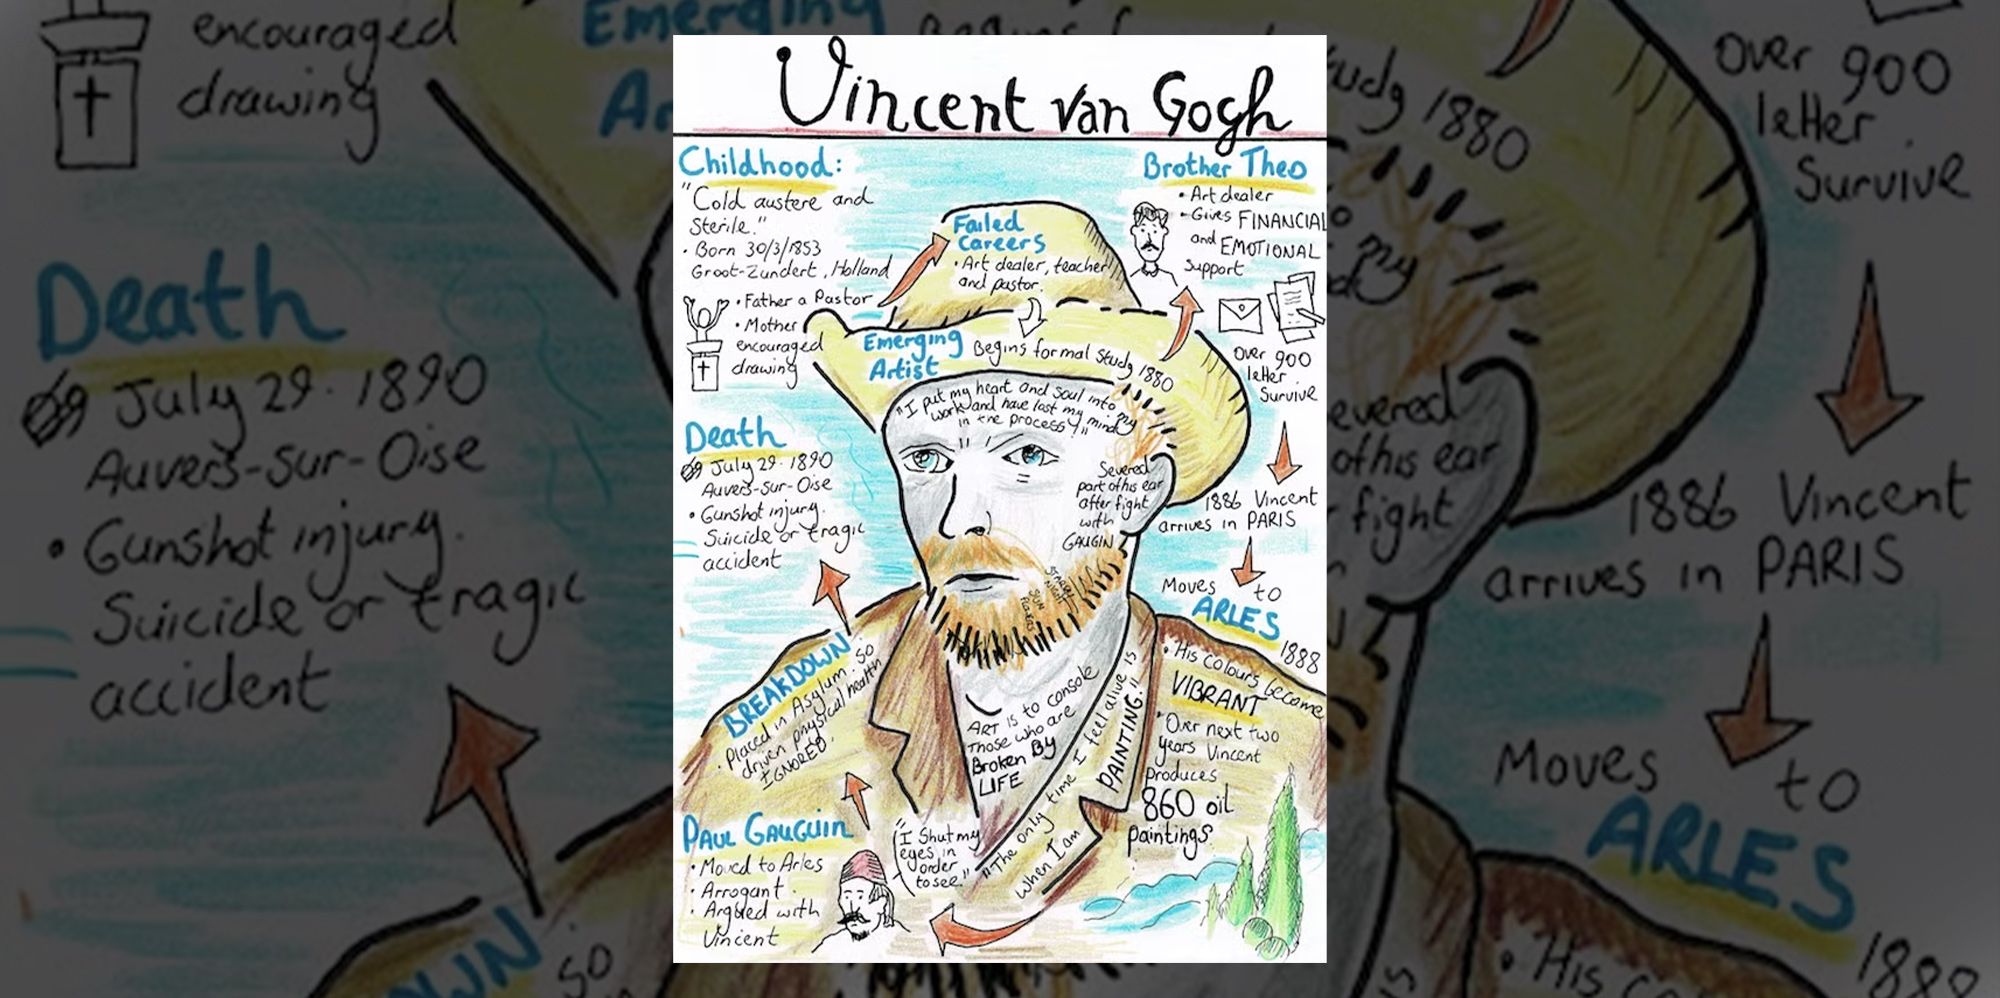 Vincent van Gogh
Childhood:
"Cold austere and
Sterile."
• Born 30/3/1853
Groot-Zundert, Holland
• Father a Pastor
• Mother
encouraged
drawing
Failed
Careers
• Art dealer, teacher
and pastor.
Emerging
Artist
Begins formal Study 1880
Brother Theo
• Art dealer
• Gives FINANCIAL
and EMOTIONAL
Support
Over 900
letter
Survive
1886 Vincent
arrives in PARIS
Moves to
ARLES
1888
• His colours become
VIBRANT
• Over next two
years Vincent
produces
860 oil
paintings
"I put my heart and soul into my
work and have lost my mind
in the process!"
Severed
part of his ear
after fight
with
GAUGIN
STARRY
NIGHT
SUN
FLOWERS
ART is to console
Those who are
Broken By
LIFE
"The only time I feel alive is
when I am PAINTING."
"I Shut my
eyes in
order
to see."
PAUL GAUGUIN
• Moved to Arles
• Arrogant.
• Argued with
Vincent
BREAKDOWN
• Placed in Asylum. So
driven physical health
IGNORED.
Death
July 29. 1890
Auvers-Sur-Oise
• Gunshot injury.
Suicide or tragic
accident
encouraged
drawing
Emerging
Death
July 29. 1890
Auvers-Sur-Oise
• Gunshot injury.
Suicide or tragic
accident
Over 900
letter
Survive
1880
1886 Vincent
arrives in PARIS
Moves to
ARLES
1888
• His